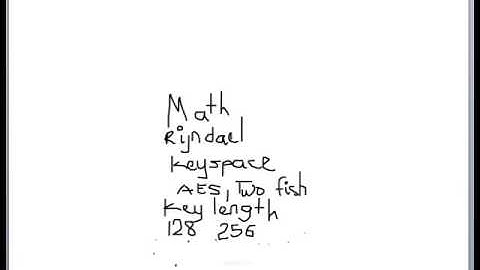 Math
Rijndael
Keyspace
AES, Two fish
Key length
128 256